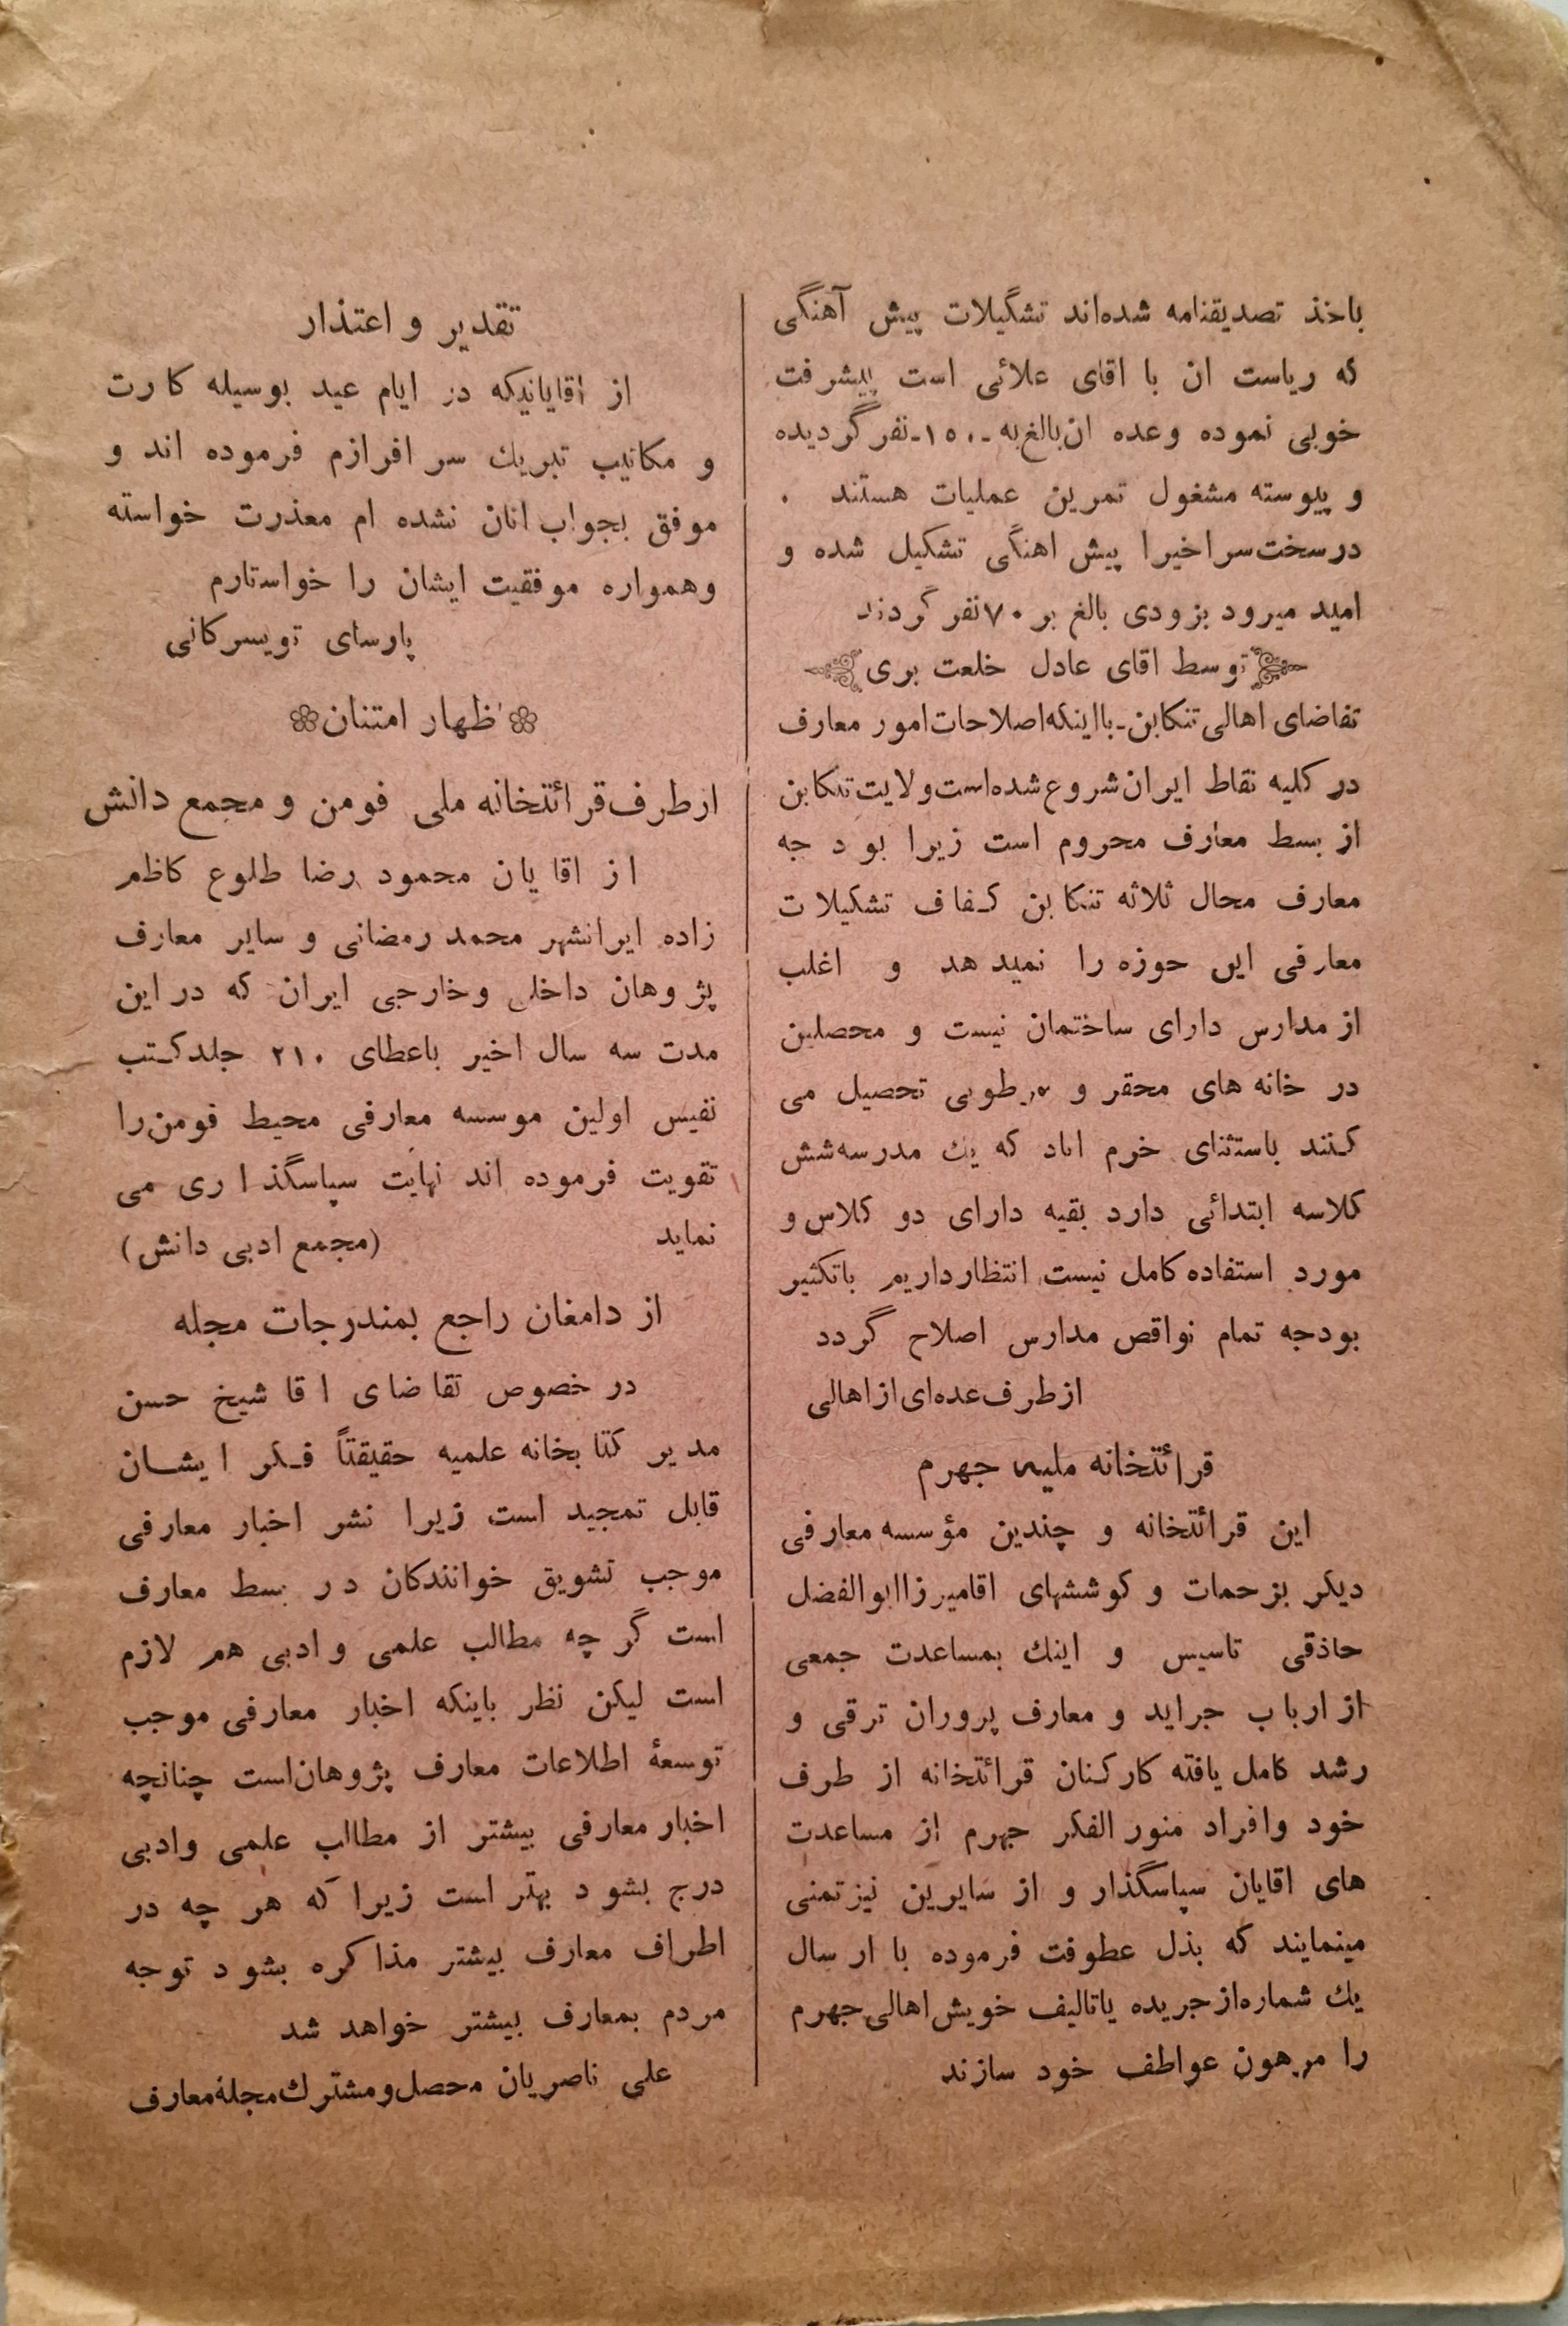 باخذ تصدیقنامه شده‌اند تشگیلات پیش آهنگی
که ریاست ان با اقای علائی است پیشرفت
خوبی نموده وعده ان بالغ به ـ۱۵۰ـ نفر گردیده
و پیوسته مشغول تمرین عملیات هستند .
درسخت‌سر اخیرا پیش اهنگی تشکیل شده و
امید میرود بزودی بالغ بر ۷۰ نفر گردند
توسط اقای عادل خلعت بری
تفاضای اهالی تنکابن ـ بااینکه اصلاحات امور معارف
در کلیه نقاط ایران شروع شده است ولایت تنکابن
از بسط معارف محروم است زیرا بود جه
معارف محال ثلاثه تنکابن کفاف تشکیلات
معارفی این حوزه را نمیدهد و اغلب
از مدارس دارای ساختمان نیست و محصلین
در خانه های محقر و مرطوبی تحصیل می
کنند باستثنای خرم اباد که یك مدرسه شش
کلاسه ابتدائی دارد بقیه دارای دو کلاس و
مورد استفاده کامل نیست انتظارداریم باتکثیر
بودجه تمام نواقص مدارس اصلاح گردد
ازطرف عده‌ای از اهالی
قرائتخانه ملیه جهرم
این قرائتخانه و چندین مؤسسه معارفی
دیکر بزحمات و کوششهای اقامیرزا ابوالفضل
حاذقی تاسیس و اینك بمساعدت جمعی
از ارباب جراید و معارف پروران ترقی و
رشد کامل یافته کارکنان قرائتخانه از طرف
خود وافراد منور الفکر جهرم از مساعدت
های اقایان سپاسگذار و از سایرین نیز تمنی
مینمایند که بذل عطوفت فرموده با ارسال
یك شماره از جریده یاتالیف خویش اهالی جهرم
را مرهون عواطف خود سازند
تقدیر و اعتذار
از اقایانیکه در ایام عید بوسیله کارت
و مکاتیب تبریك سر افرازم فرموده اند و
موفق بجواب انان نشده ام معذرت خواسته
وهمواره موفقیت ایشان را خواستارم
پارسای تویسرکانی
اظهار امتنان
ازطرف قرائتخانه ملی فومن و مجمع دانش
از اقایان محمود رضا طلوع کاظم
زاده ایرانشهر محمد رمضانی و سایر معارف
پژوهان داخلی وخارجی ایران که در این
مدت سه سال اخیر باعطای ۲۱۰ جلد کتب
نفیس اولین موسسه معارفی محیط فومن را
تقویت فرموده اند نهایت سپاسگذاری می
نماید (مجمع ادبی دانش)
از دامغان راجع بمندرجات مجله
در خصوص تقاضای اقا شیخ حسن
مدیر کتابخانه علمیه حقیقتاً فکر ایشان
قابل تمجید است زیرا نشر اخبار معارفی
موجب تشویق خوانندکان در بسط معارف
است گر چه مطالب علمی و ادبی هم لازم
است لیکن نظر باینکه اخبار معارفی موجب
توسعهٔ اطلاعات معارف پژوهان است چنانچه
اخبار معارفی بیشتر از مطالب علمی وادبی
درج بشود بهتر است زیرا که هر چه در
اطراف معارف بیشتر مذاکره بشود توجه
مردم بمعارف بیشتر خواهد شد
علی ناصریان محصل و مشترك مجلهٔ معارف